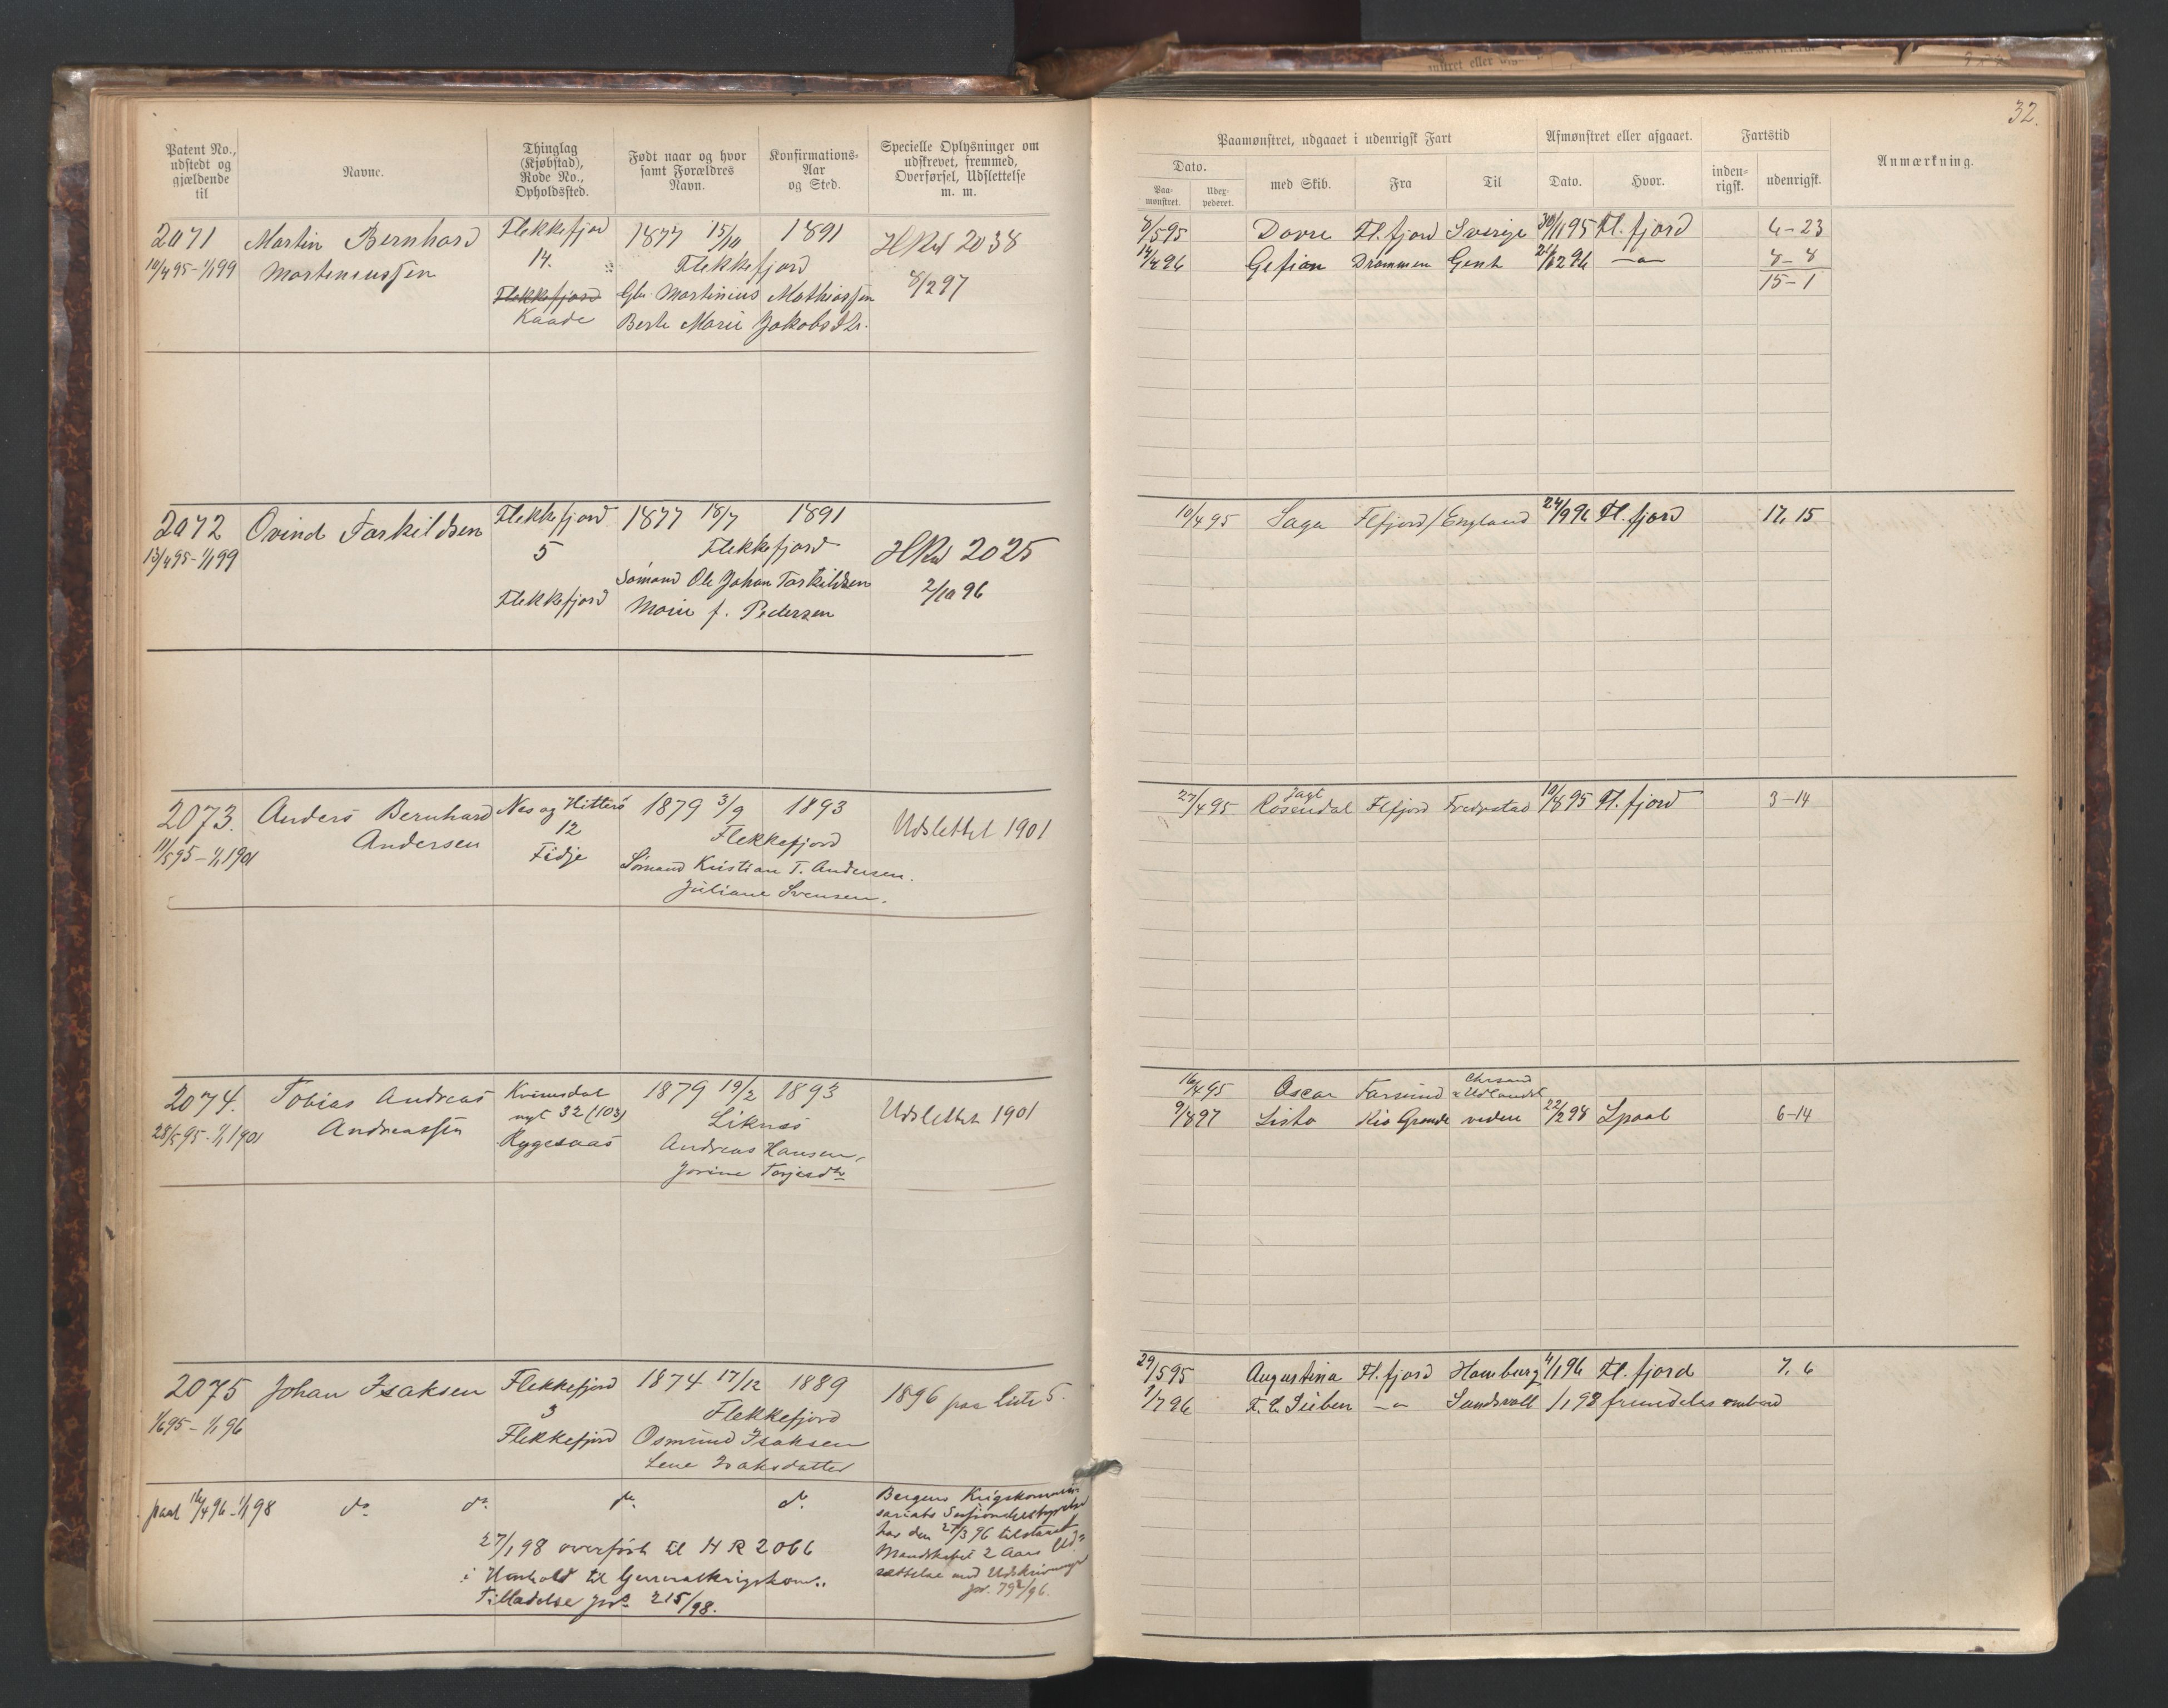 32.
Patent No., udstedt og gjældende til
Navne.
Thinglag (Kjøbstad), Rode No., Opholdssted.
Født naar og hvor samt Forældres Navn.
Konfirmations-Aar og Sted.
Specielle Oplysninger om udskrevet, fremmed, Overførsel, Udslettelse m. m.
Paamønstret, udgaaet i udenrigsk Fart
Afmønstret eller afgaaet.
Fartstid
Anmærkning.
Dato.
Paamønstret.
Uderpederet.
med Skib.
Fra
Til
Dato.
Hvor.
indenrigsk.
udenrigsk.
2071 Martin Bernhard Flekkefjord 1877 15/10 1891 HRul 2038
10/4 95 - 1/1 99 Martiniussen 14. Flekkefjord 8/2 97
Flekkefjord Gbr. Martinius Mathiassen
Kaade Berte Marie Jakobsdtr.
8/5 95 Dovre Fl.fjord Sverige 30/1 95 Fl.fjord 6-23
14/4 96 Gefion Drammen Gent 96 -"- 8-8
15-1
2072 Ovind Tarkildsen Flekkefjord 1877 18/7 1891
13/4 95 - 1/1 99 5 Flekkefjord HRul 2025
Sømand Ole Johan Tarkildsen 2/10 96
Flekkefjord Marie f. Pedersen
10/4 95 Saga Flfjord/England 24/9 96 Fl.fjord 17, 15
2073. Anders Bernhard Nes og Hitterø 1879 3/9 1893 Udslettet 1901
11/5 95 - 1/1 1901 Andersen 12 Flekkefjord
Fidje Sømand Kristian T. Andersen.
Juliane Svensen.
27/4 95 Jagt Rosendal Flfjord Fredrstad 10/8 95 Fl.fjord 3-14
2074. Tobias Andreas Kvinesdal 1879 19/2 1893 Udslettet 1901
28/5 95 - 1/1 1901 Andreassen nyt 32 (103) Liknes
Rygesaas Andreas Hansen,
Jorine Torjesdtr
16/4 95 Oscar Farsund Chrsand & Udlandet
9/8 97 Lista Rio Grande videre 22/2 98 Lpool 6-14
2075 Johan Isaksen Flekkefjord 1874 17/12 1889 1896 paa liste 5.
1/6 95 - 1/1 96 3 Flekkefjord
Flekkefjord Osmund Isaksen
Lene Isaksdatter
29/5 95 Augustina Fl.fjord Hamburg 4/1 96 Fl.fjord 7, 6
1/7 96 -"- Sundsvall 1/1 98 fremdeles ombord
16/4 96 - 1/1 98 do do do do
Bergens Krigskommis
sariats
har den 27/3 96 tilstaaet
Mandskabet 2 Aars Ud=
sættelse med Udskrivningen
jr. 792/96.
27/1 98 overført til HR 2066
i Henhold til Generalkrigskom..
Tilladelse jrs. 215/98.